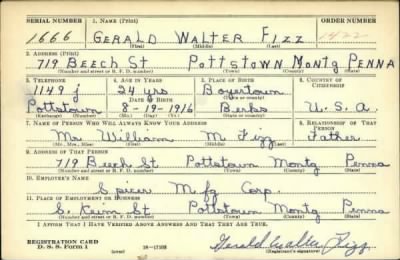 SERIAL NUMBER 1. NAME (Print) ORDER NUMBER
1666 GERALD WALTER FIZZ 1422
(First) (Middle) (Last)
2. ADDRESS (Print)
719 BEECH ST POTTSTOWN MONTG PENNA
(Number and street or R. F. D. number) (Town) (County) (State)
3. TELEPHONE 4. AGE IN YEARS 5. PLACE OF BIRTH 6. COUNTRY OF CITIZENSHIP
1149 J 24 yrs Boyertown
DATE OF BIRTH (Town or county)
Pottstown 8-19-1916 Berks U.S.A.
(Exchange) (Number) (Mo.) (Day) (Yr.) (State or country)
7. NAME OF PERSON WHO WILL ALWAYS KNOW YOUR ADDRESS 8. RELATIONSHIP OF THAT PERSON
Mr William M Fizz Father
(Mr., Mrs., Miss) (First) (Middle) (Last)
9. ADDRESS OF THAT PERSON
719 Beech St Pottstown Montg Penna
(Number and street or R. F. D. number) (Town) (County) (State)
10. EMPLOYER'S NAME
Spicer Mfg Corp.
11. PLACE OF EMPLOYMENT OR BUSINESS
S. Keim St Pottstown Montg Penna
(Number and street or R. F. D. number) (Town) (County) (State)
I AFFIRM THAT I HAVE VERIFIED ABOVE ANSWERS AND THAT THEY ARE TRUE.
REGISTRATION CARD
D. S. S. Form 1 (over) 16-17105 Gerald Walter Fizz
(Registrant's signature)